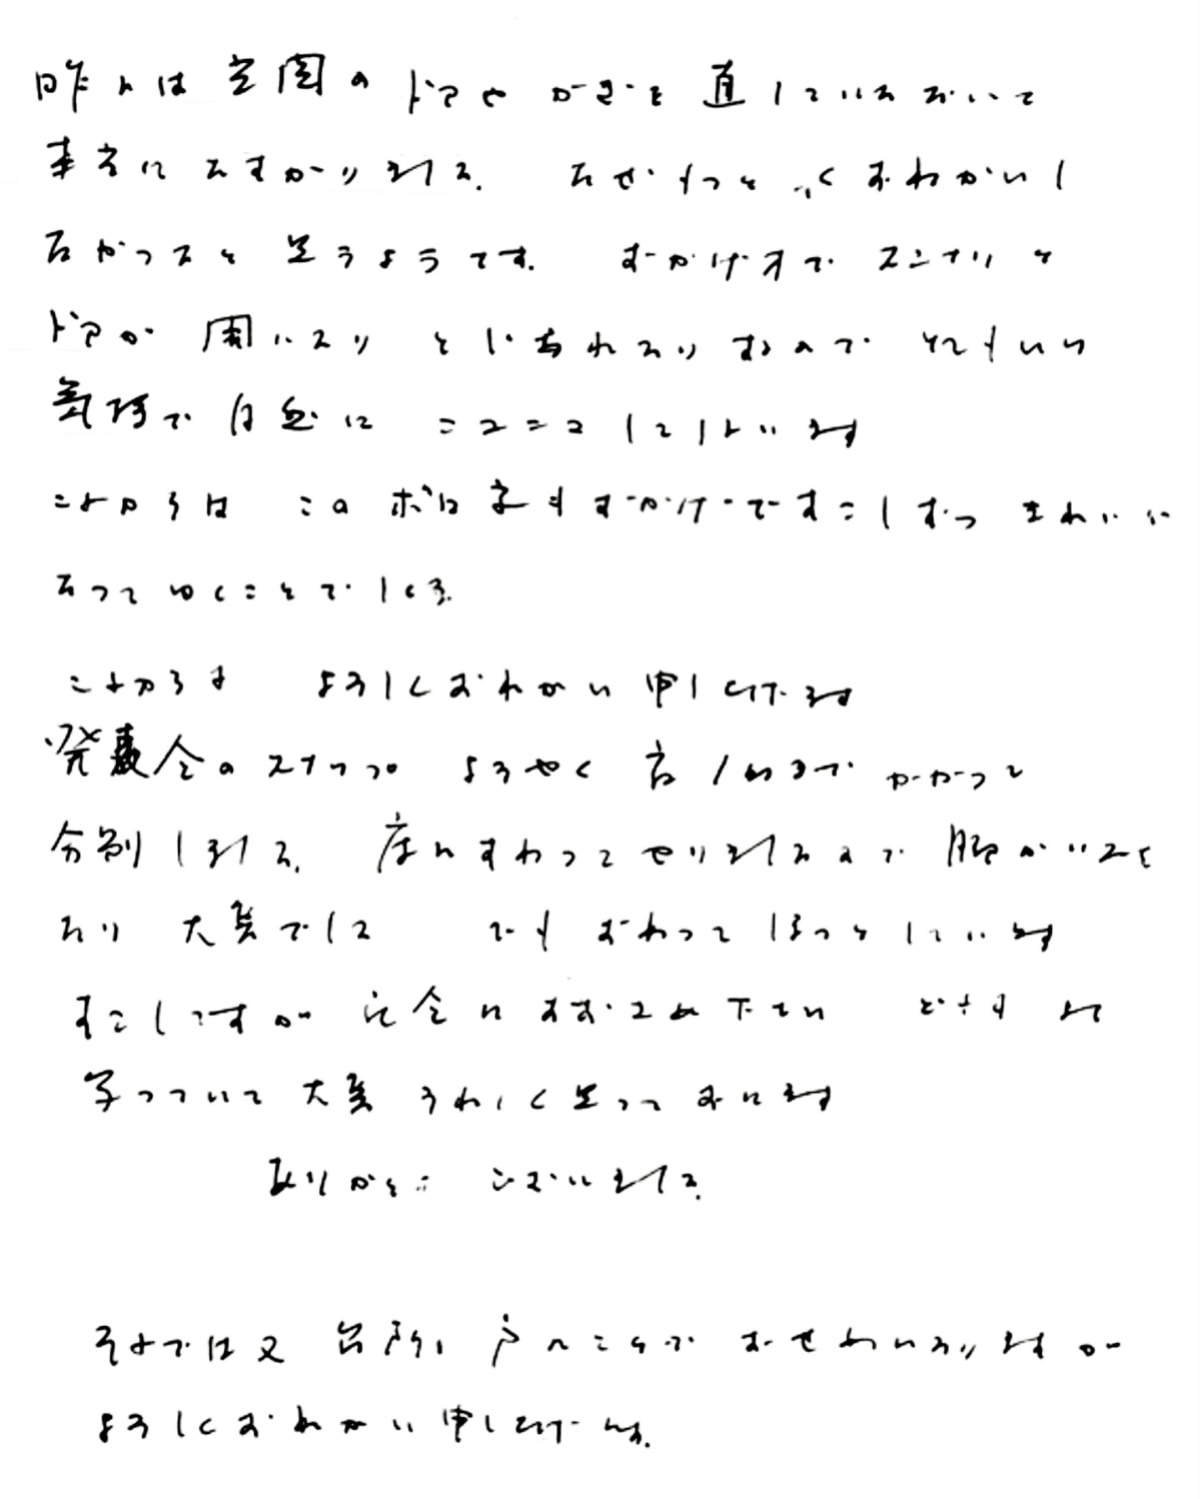 昨日は玄関のドアやかぎを直していただいて
本当にたすかりました。なぜもっと早くおねがいし
なかったと思うようです。おかげ様でスンナリと
ドアが開いたり とじられたりするので とてもいい
気持で自然に ニコニコしてしまいます
これからは このボロ家もおかげですこしずつ きれいに
なってゆくことでしょう。
これからも よろしくおねがい申し上げます
発表会のスナップ ようやく 夜 までかかって
分別しました。床にすわってやりましたので 腰がいたく
なり 大変でした でも おわってほっとしています
すこしですが 記念におおさめ下さい どれもよく
写っていて 大変うれしく思っております
ありがとうございました。
それでは又 台所の戸のことでおせわになりますが
よろしくおねがい申し上げます。